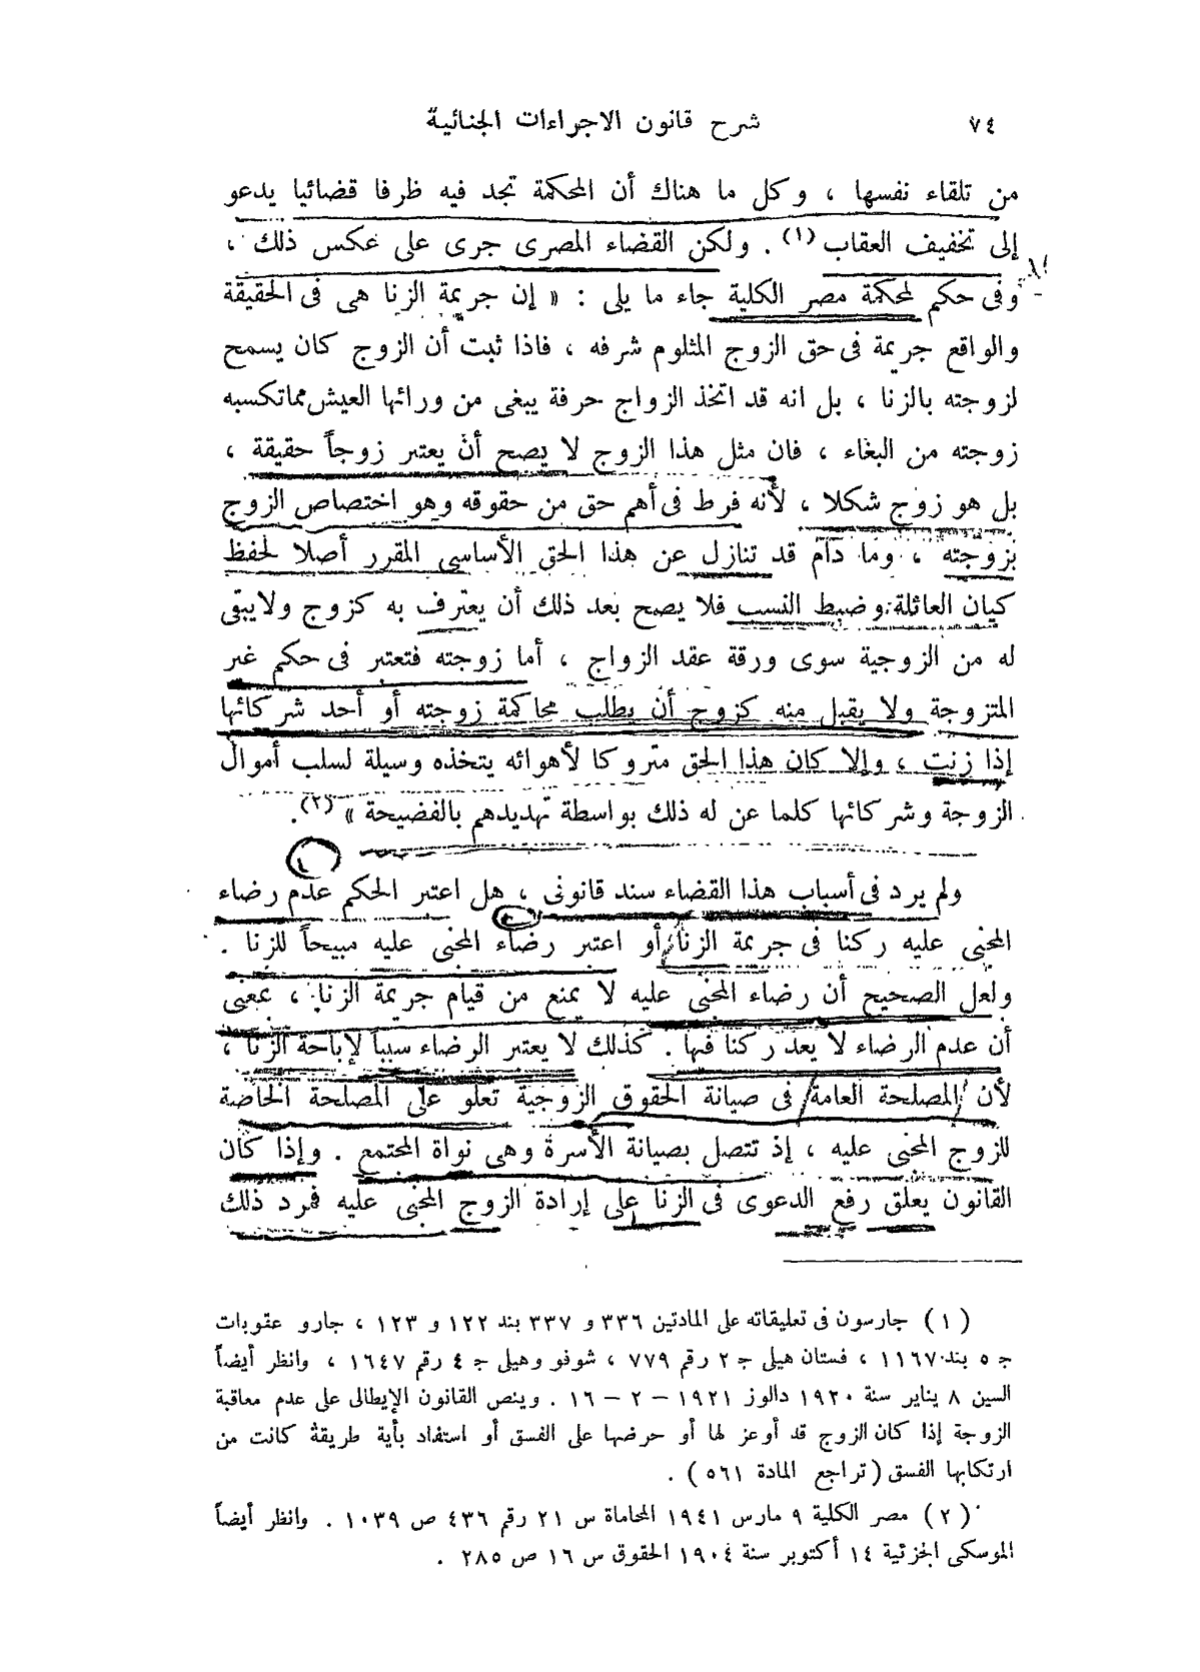 ٧٤
شرح قانون الاجراءات الجنائية
من تلقاء نفسها ، وكل ما هناك أن المحكمة تجد فيه ظرفا قضائيا يدعو
إلى تخفيف العقاب (١) . ولكن القضاء المصرى جرى على عكس ذلك ،
وفى حكم لمحكمة مصر الكلية جاء ما يلى : « إن جريمة الزنا هى فى الحقيقة
والواقع جريمة فى حق الزوج المثلوم شرفه ، فاذا ثبت أن الزوج كان يسمح
لزوجته بالزنا ، بل انه قد اتخذ الزواج حرفة يبغى من ورائها العيش مما تكسبه
زوجته من البغاء ، فان مثل هذا الزوج لا يصح أن يعتبر زوجاً حقيقة ،
بل هو زوج شكلا ، لأنه فرط فى أهم حق من حقوقه وهو اختصاص الزوج
بزوجته ، وما دام قد تنازل عن هذا الحق الأساسى المقرر أصلا لحفظ
كيان العائلة وضبط النسب فلا يصح بعد ذلك أن يعترف به كزوج ولا يبقى
له من الزوجية سوى ورقة عقد الزواج ، أما زوجته فتعتبر فى حكم غير
المتزوجة ولا يقبل منه كزوج أن يطلب محاكمة زوجته أو أحد شركائها
إذا زنت ، وإلا كان هذا الحق متروكا لأهوائه يتخذه وسيلة لسلب أموال
الزوجة وشركائها كلما عن له ذلك بواسطة تهديدهم بالفضيحة » (٢) .
ولم يرد فى أسباب هذا القضاء سند قانونى ، هل اعتبر الحكم عدم رضاء
المجنى عليه ركنا فى جريمة الزنا أو اعتبر رضاء المجنى عليه مبيحاً للزنا .
ولعل الصحيح أن رضاء المجنى عليه لا يمنع من قيام جريمة الزنا ، بمعنى
أن عدم الرضاء لا يعد ركنا فيها . كذلك لا يعتبر الرضاء سبباً لإباحة الزنا ،
لأن المصلحة العامة فى صيانة الحقوق الزوجية تعلو على المصلحة الخاصة
للزوج المجنى عليه ، إذ تتصل بصيانة الأسرة وهى نواة المجتمع . وإذا كان
القانون يعلق رفع الدعوى فى الزنا على إرادة الزوج المجنى عليه فمرد ذلك
(١) جارسون فى تعليقاته على المادتين ٣٣٦ و ٣٣٧ بند ١٢٢ و ١٢٣ ، جارو عقوبات
ج ٥ بند ١١٦٧ ، فستان هيلى ج ٢ رقم ٧٧٩ ، شوفو وهيلى ج ٤ رقم ١٦٤٧ ، وانظر أيضاً
السين ٨ يناير سنة ١٩٢٠ دالوز ١٩٢١ – ٢ – ١٦ . وينص القانون الإيطالى على عدم معاقبة
الزوجة إذا كان الزوج قد أوعز لها أو حرضها على الفسق أو استفاد بأية طريقة كانت من
ارتكابها الفسق (تراجع المادة ٥٦١) .
(٢) مصر الكلية ٩ مارس ١٩٤١ المحاماة س ٢١ رقم ٤٣٦ ص ١٠٣٩ . وانظر أيضاً
الموسكى الجزئية ١٤ أكتوبر سنة ١٩٠٤ الحقوق س ١٦ ص ٢٨٥ .